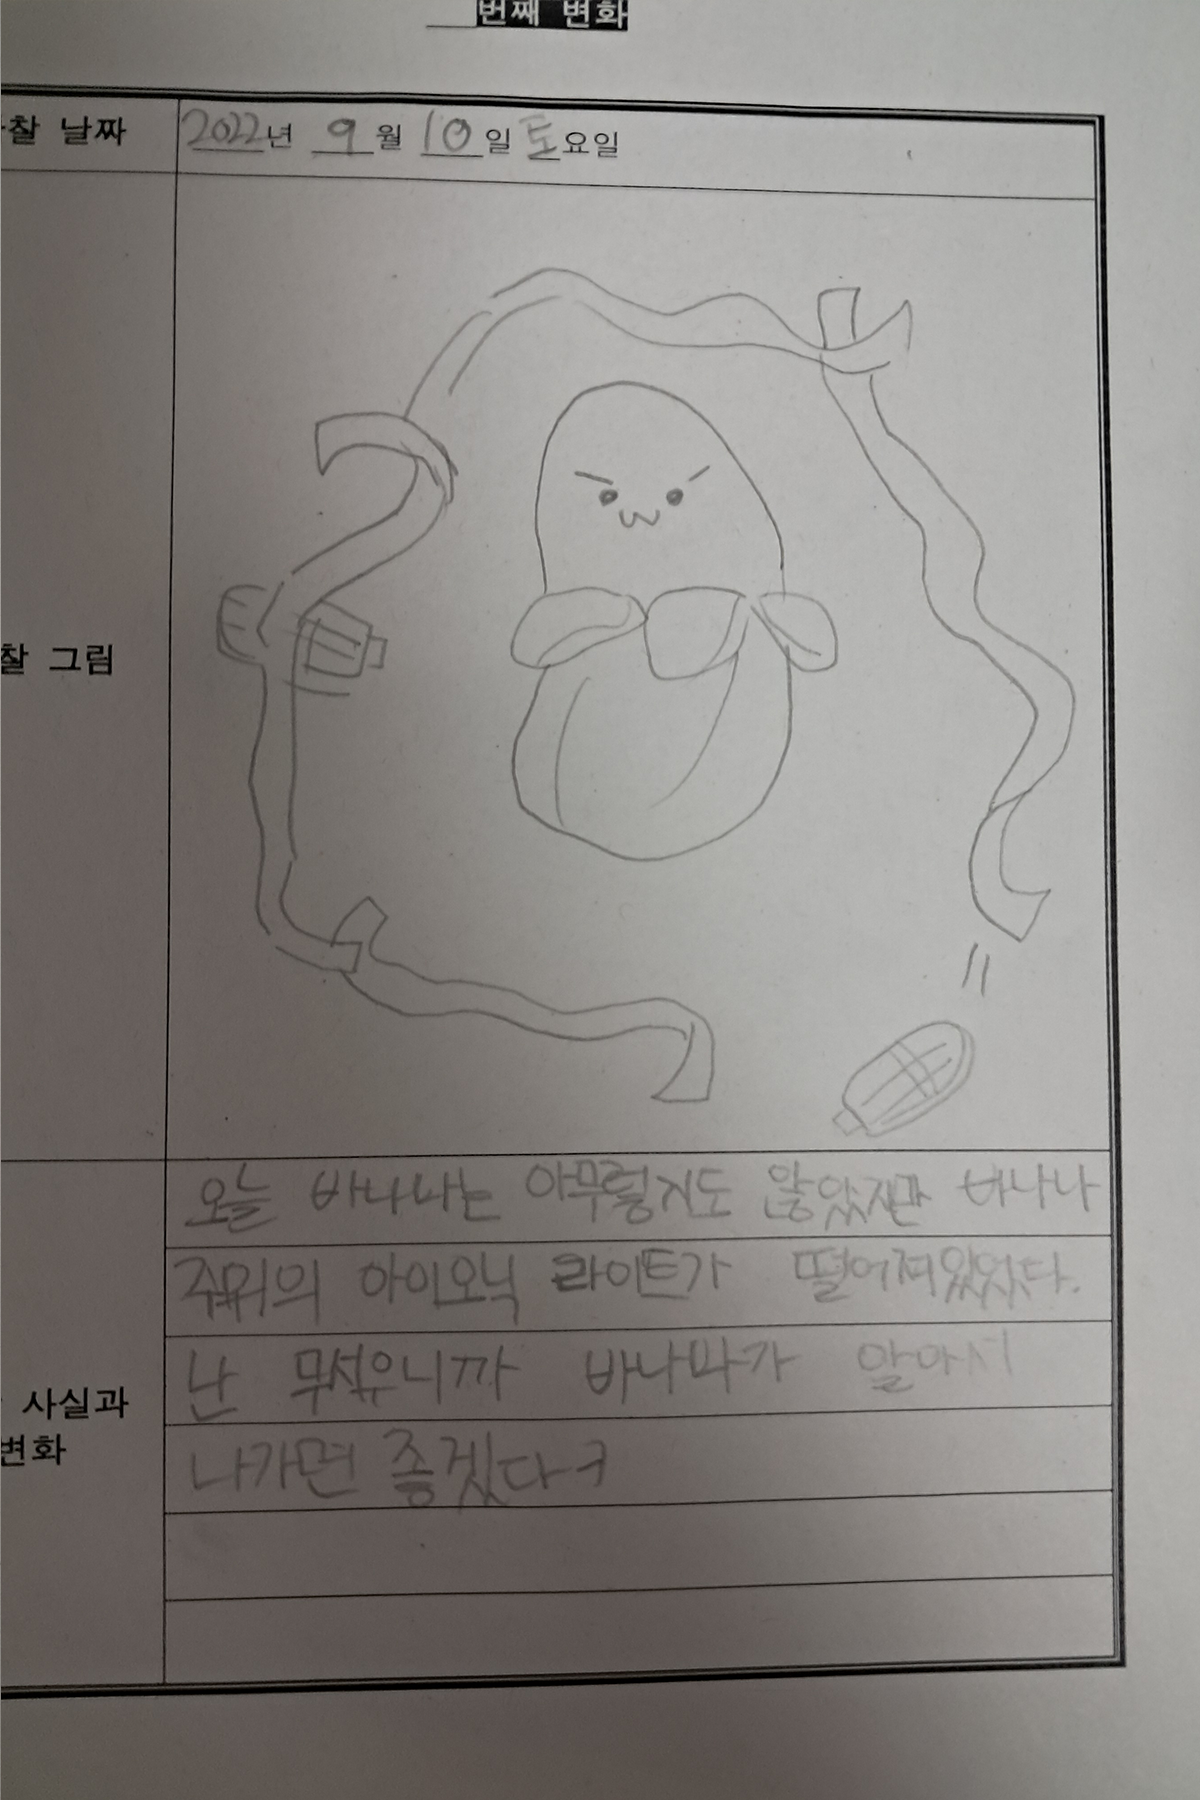 번째 변화
찰 날짜 2022년 9월 10일 토요일
찰 그림
오늘 바나나는 아무렇지도 않았지만 바나나
주위의 아이오닉 라이트가 떨어져있었다.
난 무서우니까 바나나가 알아서
사실과
변화
나가면 좋겠다ㅋ